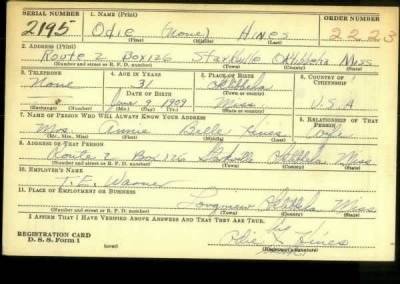 SERIAL NUMBER 1. NAME (Print) ORDER NUMBER
2195 Odie (None) Hines 2223
(First) (Middle) (Last)
2. ADDRESS (Print)
Route 2 Box 126 Starkville Oktibbeha Miss
(Number and street or R. F. D. number) (Town) (County) (State)
3. TELEPHONE 4. AGE IN YEARS 5. PLACE OF BIRTH 6. COUNTRY OF CITIZENSHIP
None 31 Oktibbeha
DATE OF BIRTH (Town or county)
June 9 1909 Miss U.S.A
(Exchange) (Number) (Mo.) (Day) (Yr.) (State or country)
7. NAME OF PERSON WHO WILL ALWAYS KNOW YOUR ADDRESS 8. RELATIONSHIP OF THAT PERSON
Mrs. Annie Belle Hines Wife
(Mr., Mrs., Miss) (First) (Middle) (Last)
9. ADDRESS OF THAT PERSON
Route 2 Box 126 Starkville Oktibbeha Miss
(Number and street or R. F. D. number) (Town) (County) (State)
10. EMPLOYER'S NAME
11. PLACE OF EMPLOYMENT OR BUSINESS
Longview Oktibbeha Miss
(Number and street or R. F. D. number) (Town) (County) (State)
I AFFIRM THAT I HAVE VERIFIED ABOVE ANSWERS AND THAT THEY ARE TRUE.
REGISTRATION CARD
D. S. S. Form 1 (over) Odie Hines
(Registrant's signature)